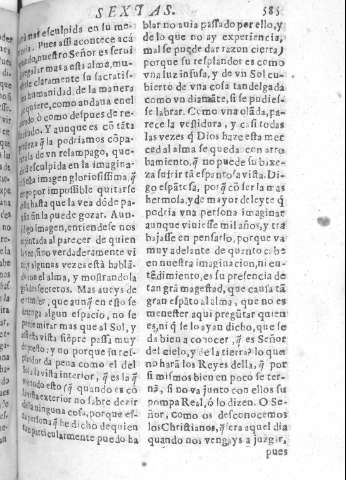 SEXTAS. 585
más esculpida en su me-
Pues assi acontece acá
nuestro Señor es serui
regalar mas esta alma, mu-
claramente su sacratis-
humanidad, de la manera
quiere, como andaua en el
o como despues de re-
Y aunque es cō tāta
q̄ la podriamos cōpa-
de vn relampago, que-
esculpida en la imagina-
imagen gloriosissima, q̄
por impossible quitarse
hasta que la vea dōde pa-
la puede gozar. Aun-
imagen, entiendese no es
pintada al parecer de quien
sino verdaderamente vi
y algunas vezes está hablā-
el alma, y mostrandola
secretos. Mas aueys de
que aunq̄ en esto se
algun espacio, no se
mirar mas que al Sol, y
vista siēpre passa muy
y no porque su res-
da pena como el del
la vista interior, q̄ es la q̄
todo esto (q̄ quando es cō
vista exterior no sabre dezir
ninguna cosa, porque es-
persona q̄ he dicho dequien
particularmente puedo ha
blar no auia passado por ello, y
de lo que no ay experiencia,
mal se puede dar razon cierta)
porque su resplandor es como
vna luz infusa, y de vn Sol cu-
bierto de vna cosa tan delgada
como vn diamāte, si se pudies-
se labrar. Como vna olāda, pa-
rece la vestidura, y casi todas
las vezes q̄ Dios haze esta mer
ced al alma se queda con arro
bamiento, q̄ no puede su baxe-
za sufrir tā espantosa vista. Di-
go espātosa, porq̄ cō ser la mas
hermosa, y de mayor deleyte q̄
podria vna persona imaginar
aunque viuiesse mil años, y tra
bajasse en pensarlo, porque va
muy adelante de quanto cabe
en nuestra imaginacion, ni en-
tēdimiento, es su presencia de
tan grā magestad, que causa tā
gran espāto al alma, que no es
menester aqui pregūtar quien
es, ni q̄ se lo ayan dicho, que se
da bien a conocer, q̄ es Señor
del cielo, y de la tierra? lo que
no harā los Reyes della, q̄ por
si mismos bien en poco se ter-
nā, si no va junto con ellos su
pompa Real, ó lo dizen. O Se-
ñor, como os desconocemos
los Christianos, q̄ era aquel dia
quando nos vengays a juzgar,
pues